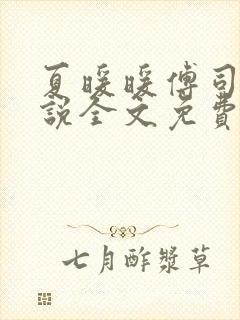 夏暖暖傅司
説全文免費
七月酢漿草